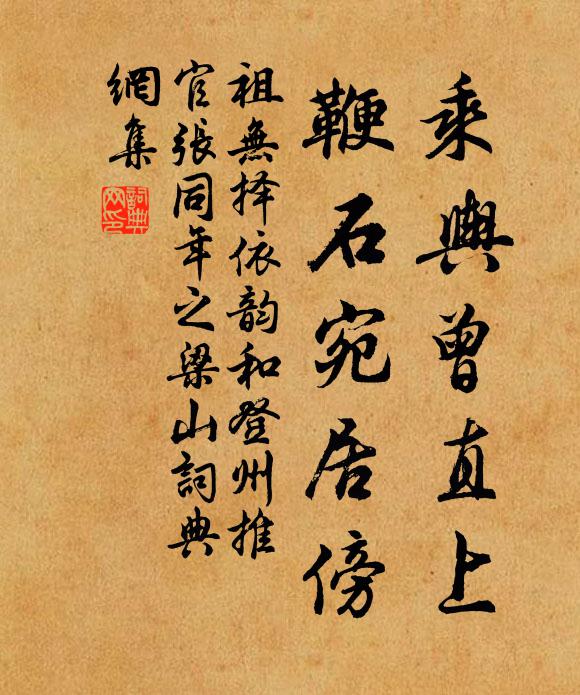 乘輿曾直上
鞭石宛居傍
祖無择依韵和登州推
官張同年之梁山詞典
網集
詞典
网印